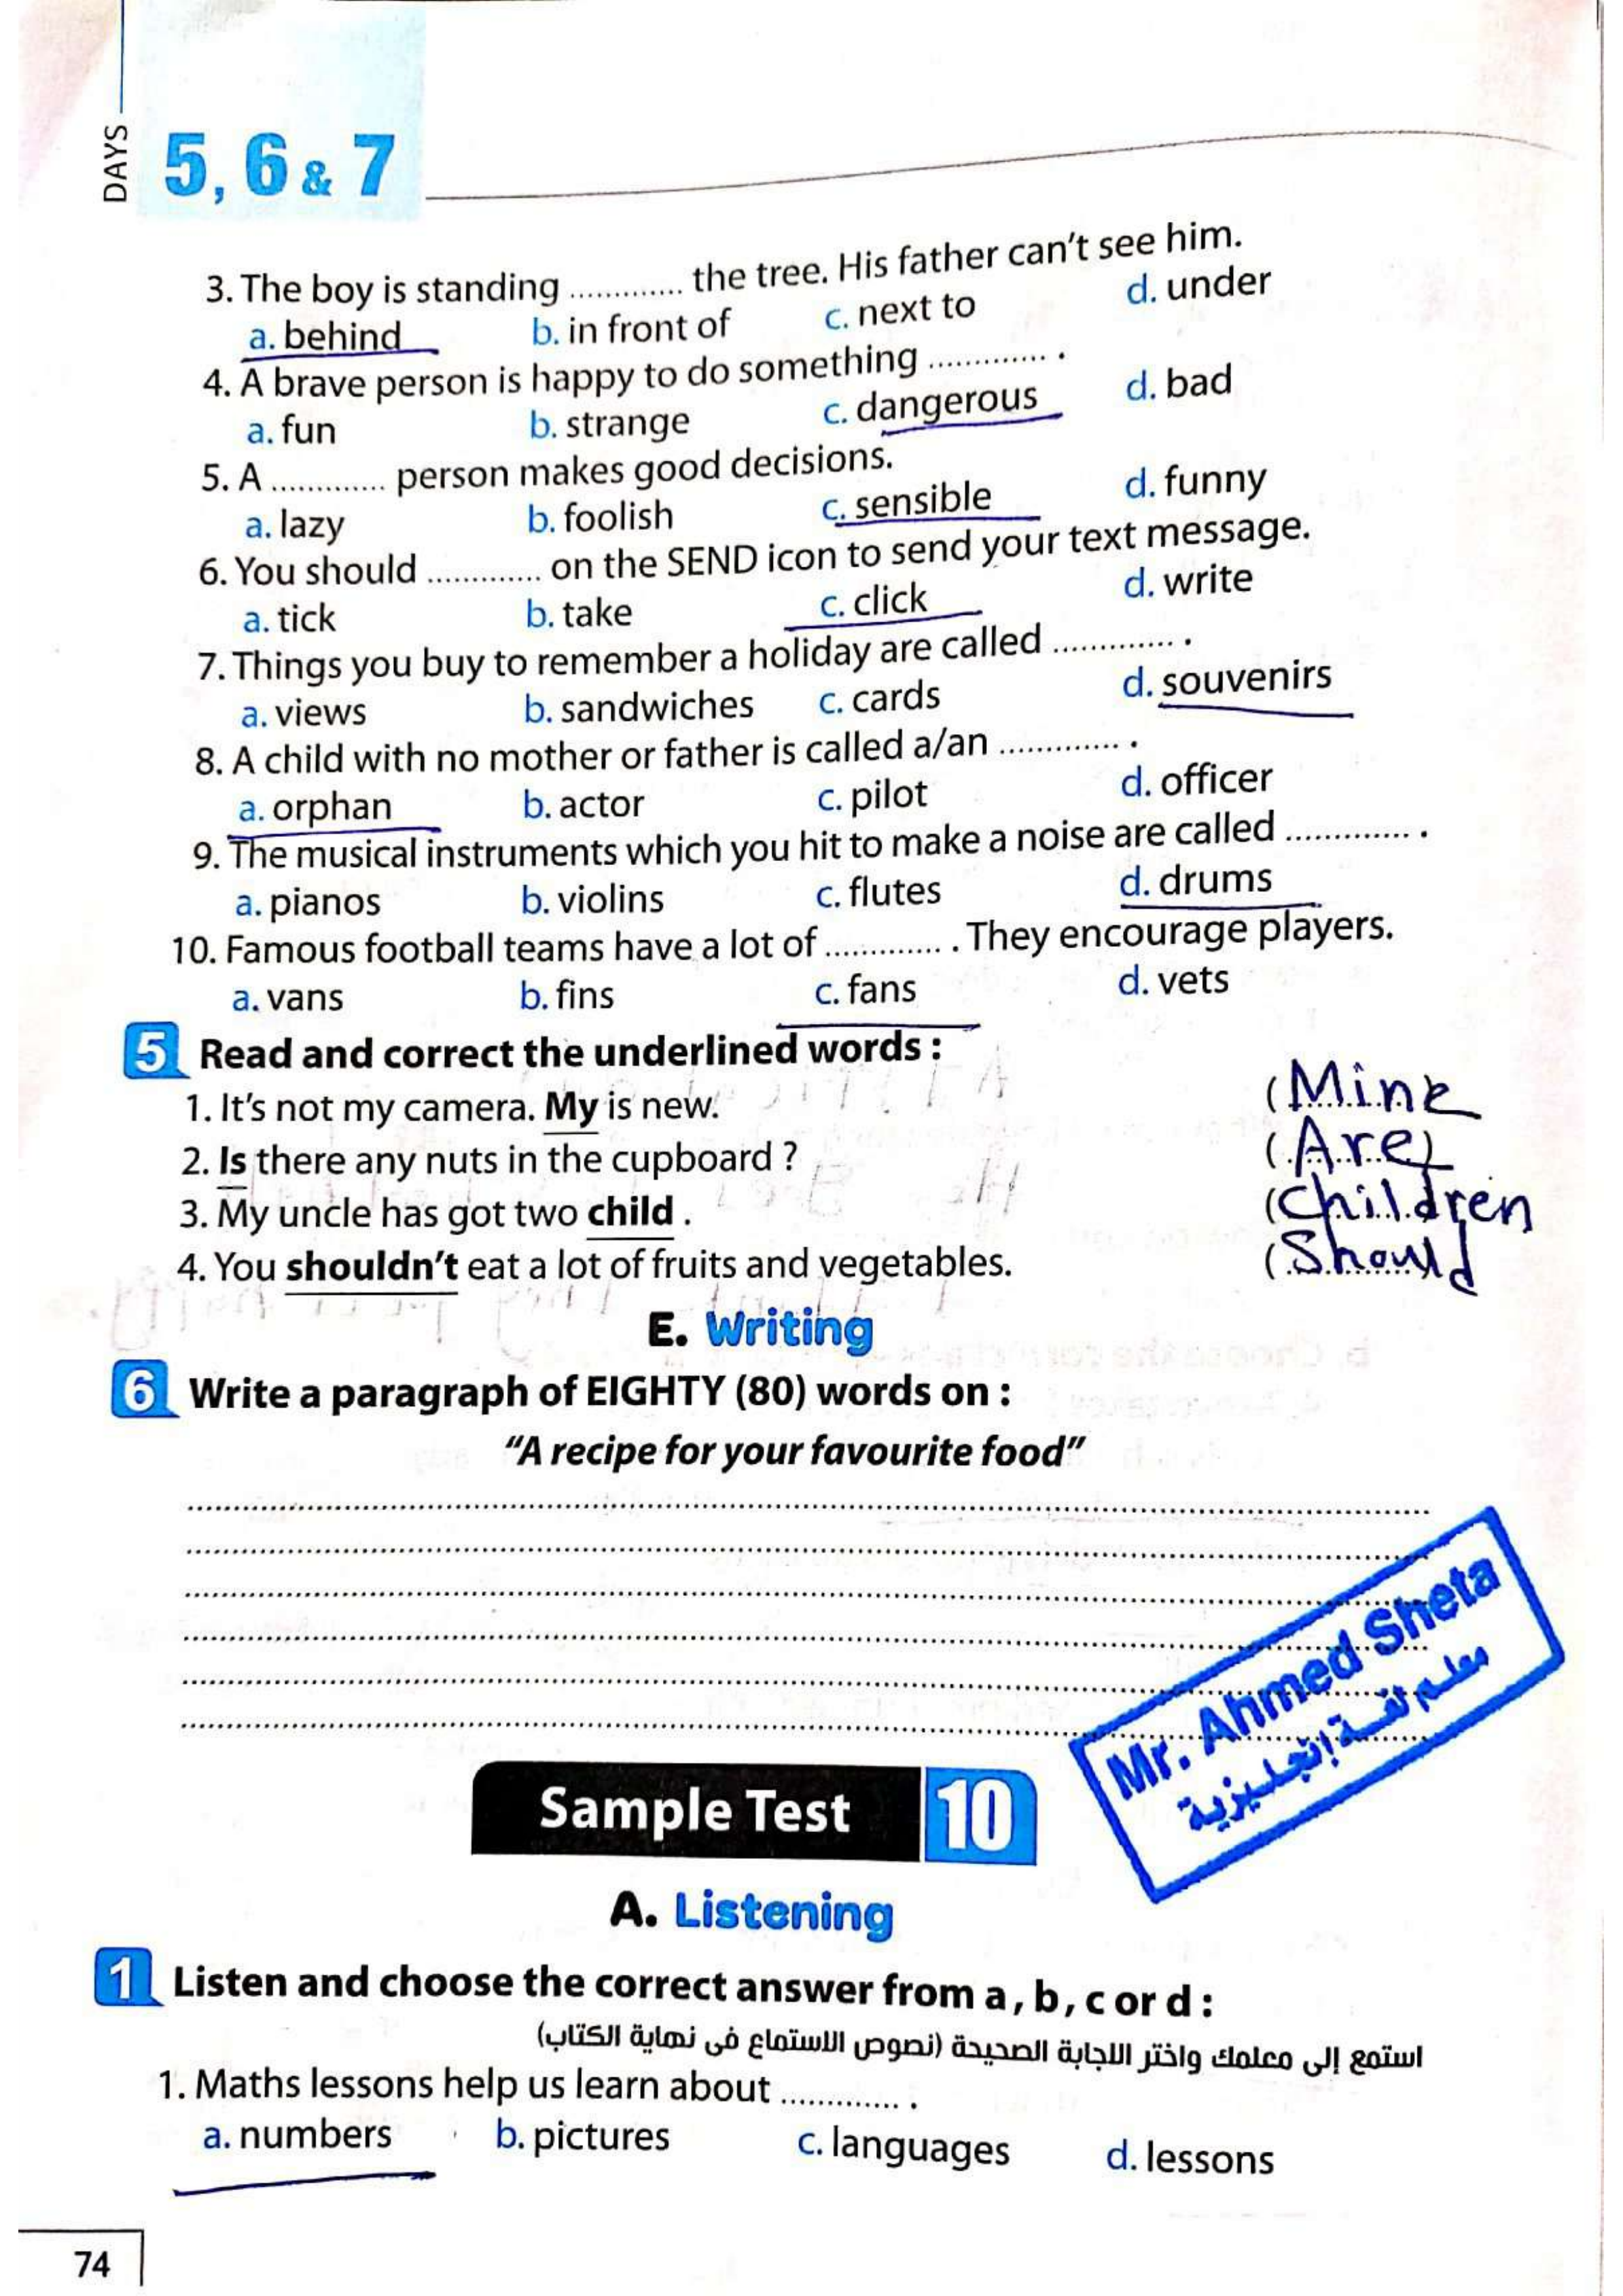 DAYS
5, 6 & 7
3. The boy is standing ............. the tree. His father can't see him.
a. behind b. in front of c. next to d. under
4. A brave person is happy to do something ............. .
a. fun b. strange c. dangerous d. bad
5. A ............. person makes good decisions.
a. lazy b. foolish c. sensible d. funny
6. You should ............. on the SEND icon to send your text message.
a. tick b. take c. click d. write
7. Things you buy to remember a holiday are called ............. .
a. views b. sandwiches c. cards d. souvenirs
8. A child with no mother or father is called a/an ............. .
a. orphan b. actor c. pilot d. officer
9. The musical instruments which you hit to make a noise are called ............. .
a. pianos b. violins c. flutes d. drums
10. Famous football teams have a lot of ............. . They encourage players.
a. vans b. fins c. fans d. vets
5 Read and correct the underlined words :
1. It's not my camera. My is new. (Mine
2. Is there any nuts in the cupboard ? (Are)
3. My uncle has got two child . (Children
4. You shouldn't eat a lot of fruits and vegetables. (Should
E. Writing
6 Write a paragraph of EIGHTY (80) words on :
"A recipe for your favourite food"
Mr. Ahmed Sheta
معلم لغة إنجليزية
Sample Test 10
A. Listening
1 Listen and choose the correct answer from a , b , c or d :
استمع إلى معلمك واختر الاجابة الصحيحة (نصوص الاستماع فى نهاية الكتاب)
1. Maths lessons help us learn about ............. .
a. numbers b. pictures c. languages d. lessons
74